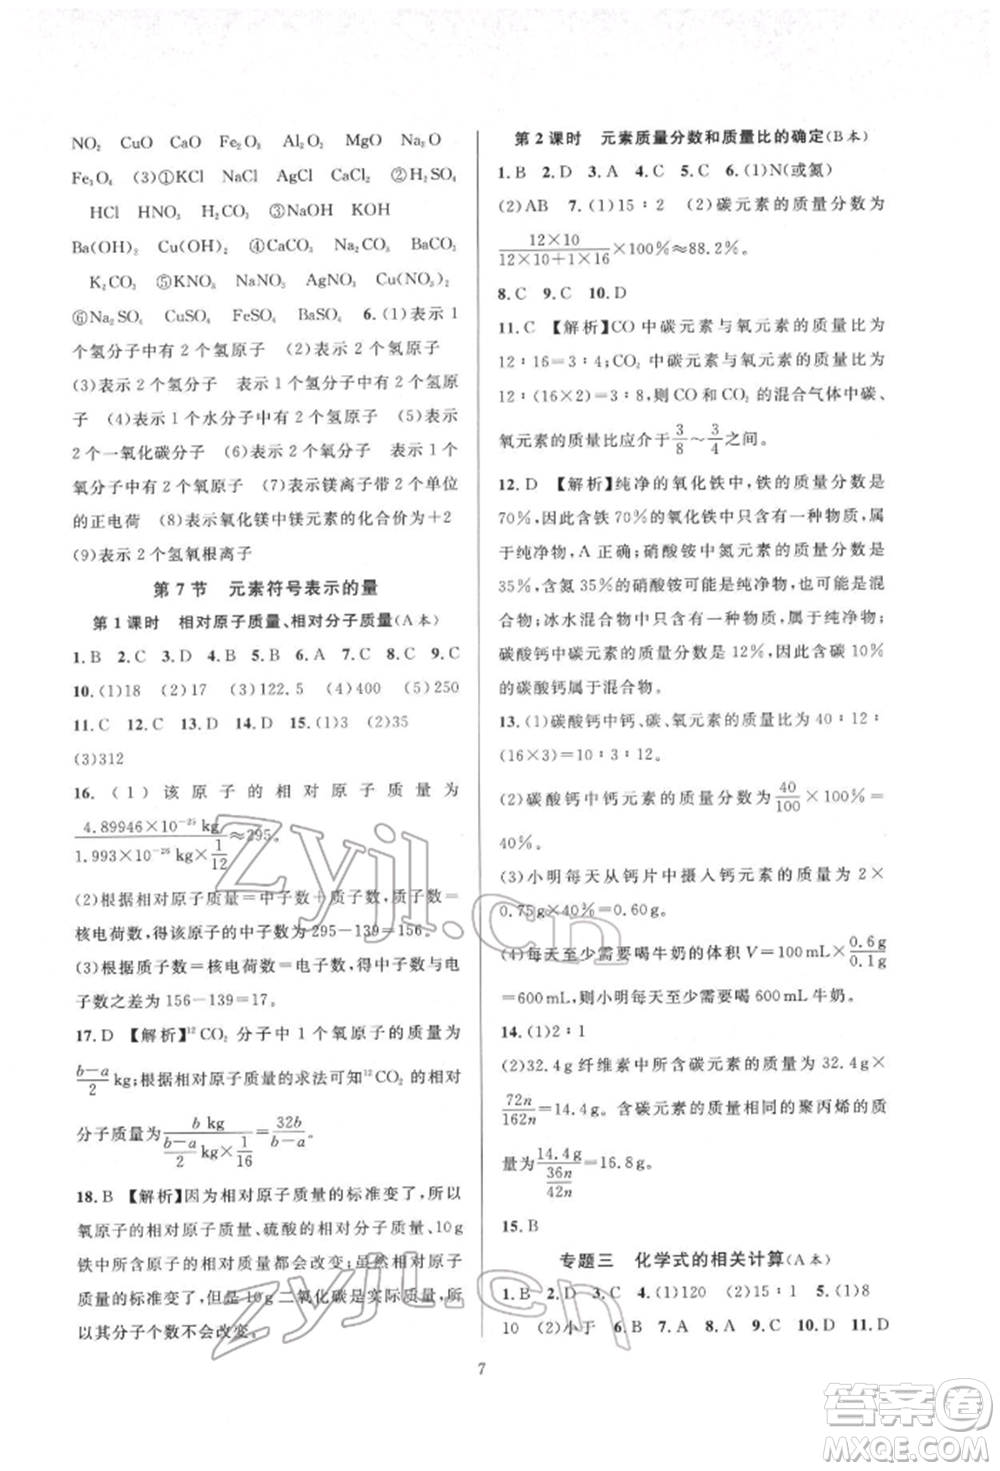 NO₂ CuO CaO Fe₂O₃ Al₂O₃ MgO
Fe₃O₄ (3)①KCl NaCl AgCl CaCl₂ ②H₂SO₄
HCl HNO₃ H₂CO₃ ③NaOH KOH
Ba(OH)₂ Cu(OH)₂ ④CaCO₃ Na₂CO₃ BaCO₃
K₂CO₃ ⑤KNO₃ NaNO₃ AgNO₃ Cu(NO₃)₂
⑥Na₂SO₄ CuSO₄ FeSO₄ BaSO₄ 6.(1)表示1
个氢分子中有2个氢原子 (2)表示2个氢原子
(3)表示2个氢分子 表示1个氢分子中有2个氢原
子 (4)表示1个水分子中有2个氢原子 (5)表示
2个一氧化碳分子 (6)表示2个二氧化硫分子 1个二
氧分子中有2个氧原子 (7)表示镁离子带2个单位
的正电荷 (8)表示氧化镁中镁元素的化合价为+2
(9)表示2个氢氧根离子
第7节 元素符号表示的量
第1课时 相对原子质量、相对分子质量(A本)
1.B 2.C 3.D 4.B 5.B 6.A 7.C 8.C 9.C
10.(1)18 (2)17 (3)122.5 (4)400 (5)250
11.C 12.C 13.D 14.D 15.(1)3 (2)35
(3)312
16.(1)该原子的相对原子质量为
4.89946×10⁻²⁵ kg/(1.993×10⁻²⁶ kg×1/12)≈295。
(2)相对原子质量=中子数+质子数,质子数=
核电荷数,得该原子的中子数为295-139=156。
(3)根据质子数=核电荷数=电子数,中子数与电
子数之差为156-139=17。
17.D 【解析】¹²CO₂分子中1个氧原子的质量为
(b-a)/2 kg;根据相对原子质量的求法可知¹²CO₂的相对
分子质量为 b kg/((b-a)/2 kg×1/16)=32b/(b-a)。
18.B 【解析】因为相对原子质量的标准变了,所以
氧原子的相对原子质量、硫酸的相对分子质量、10g
铁中所含铁原子数都会改变;虽然相对原子
质量的标准变了,但是10g二氧化碳是实际质量,所
以其分子个数不会改变。
第2课时 元素质量分数和质量比的确定(B本)
1.B 2.D 3.A 4.C 5.C 6.(1)N(或氮)
(2)AB 7.(1)15∶2 (2)碳元素的质量分数为
12×10/(12×10+1×16)×100%≈88.2%。
8.C 9.C 10.D
11.C 【解析】CO中碳元素与氧元素的质量比为
12∶16=3∶4;CO₂中碳元素与氧元素的质量比为
12∶(16×2)=3∶8,则CO和CO₂的混合气体中碳、
氧元素的质量比应介于3/8～3/4之间。
12.D 【解析】纯净的氧化铁中,铁的质量分数为
70%,因此含铁70%的氧化铁中只含有一种物质,属
于纯净物,A正确;硝酸铵中氮元素的质量分数为
35%,含氮35%的硝酸铵可能是纯净物,也可能是混
合物;冰水混合物中只含有一种物质,属于纯净物;
碳酸钙中碳元素的质量分数为12%,因此含碳10%
的碳酸钙属于混合物。
13.(1)碳酸钙中钙、碳、氧元素的质量比为40∶12∶
(16×3)=10∶3∶12。
(2)碳酸钙中钙元素的质量分数为40/100×100%=
40%。
(3)小明每天从钙片中摄入钙元素的质量为2×
0.75g×40%=0.60g。
(4)每天至少需要喝牛奶的体积V=100mL×0.6g/0.1g
=600mL,则小明每天至少需要喝600mL牛奶。
14.(1)2∶1
(2)32.4g纤维素中所含碳元素的质量为32.4g×
72n/162n=14.4g。含碳元素的质量相同的聚丙烯的质
量为14.4g/(36n/42n)=16.8g。
15.B
专题三 化学式的相关计算(A本)
1.B 2.D 3.C 4.(1)120 (2)15∶1 5.(1)8
10 (2)小于 6.B 7.A 8.A 9.C 10.D 11.D
7
Zyjl.cn
Zyjl.cn
答案圈
MXQE.COM